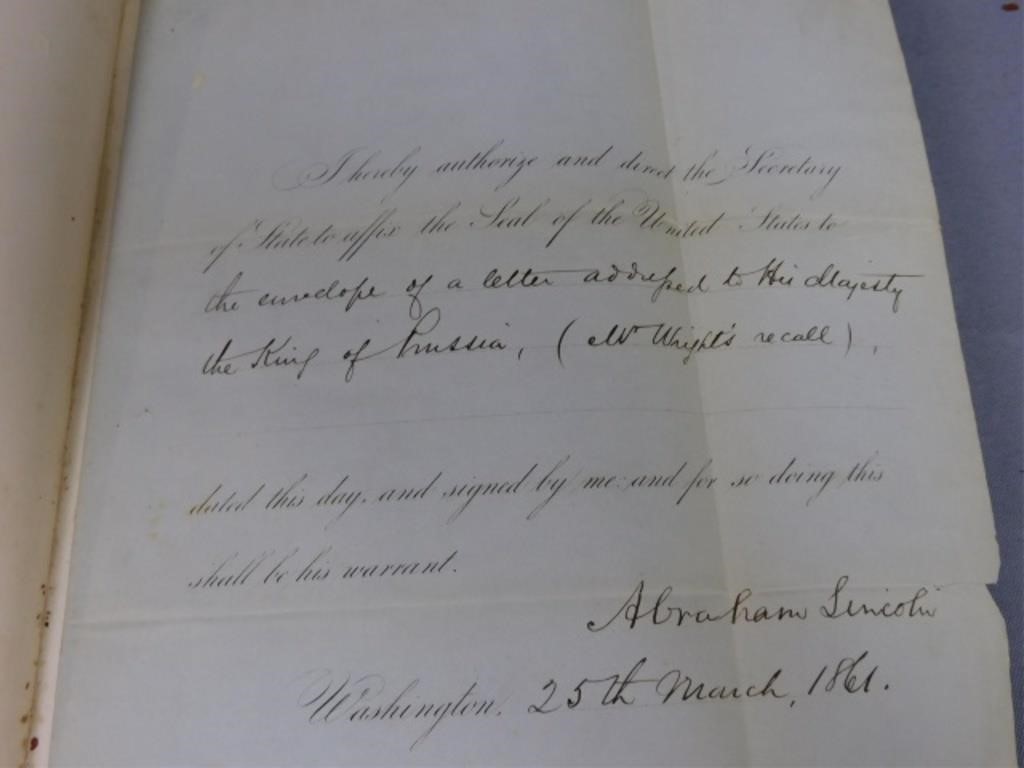 I hereby authorize and direct the Secretary
of State to affix the Seal of the United States to
the envelope of a letter addressed to His Majesty
the King of Prussia, (Mr Wright's recall),
dated this day, and signed by me: and for so doing this
shall be his warrant.
Abraham Lincoln
Washington, 25th March, 1861.